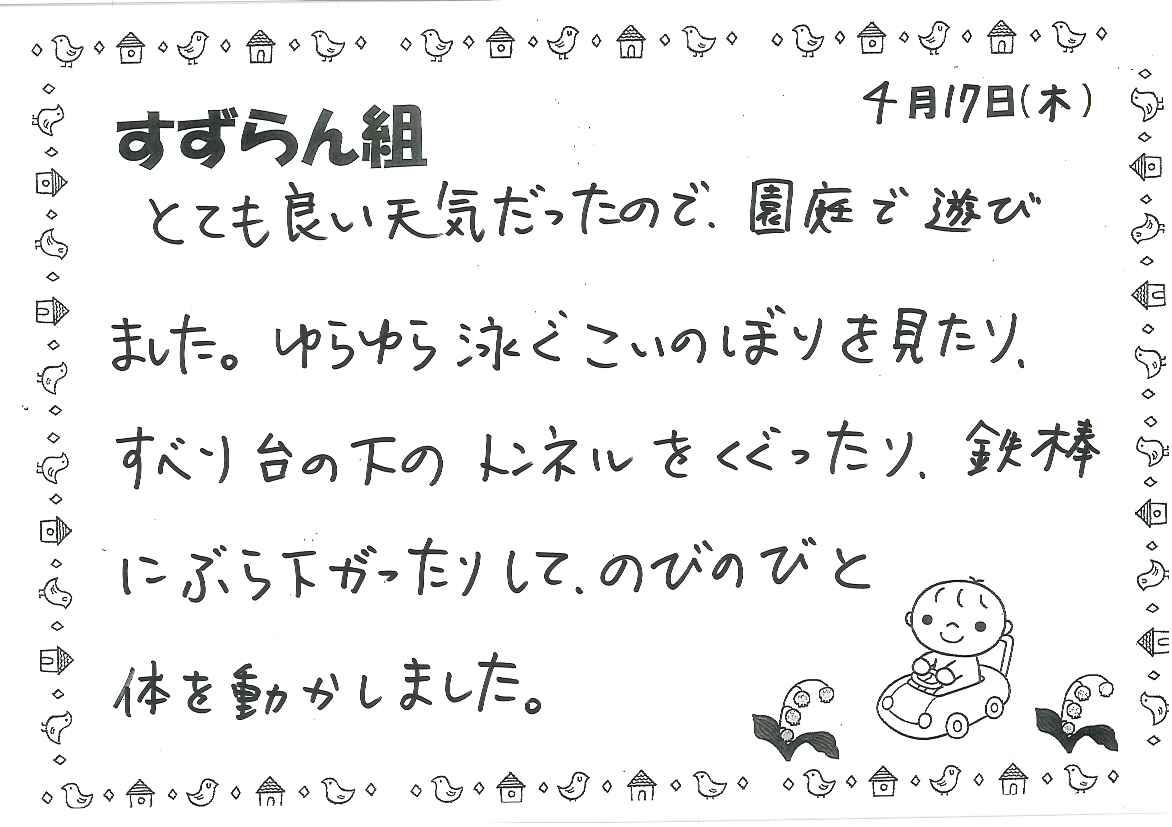 4月17日(木)
すずらん組
とても良い天気だったので、園庭で遊び
ました。ゆらゆら泳ぐこいのぼりを見たり、
すべり台の下のトンネルをくぐったり、鉄棒
にぶら下がったりして、のびのびと
体を動かしました。